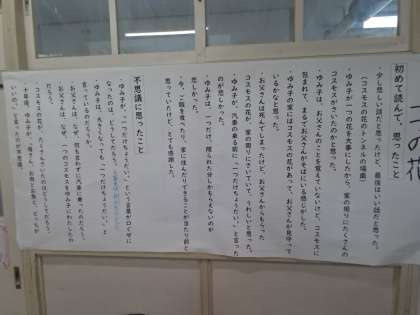 一つの花
初めて読んで、思ったこと
・少し悲しい話だと思ったけど、最後はいい話だと思った。
（コスモスの花のトンネルの場面）
・ゆみ子が一つの花を大事にしたから、家の周りにたくさんの
コスモスがさいたのかと思った。
・ゆみ子は、お父さんのことを覚えていないけど、コスモスに
包まれて、まるでお父さんがそばにいる感じがした。
・ゆみ子の家にはコスモスの花があって、お父さんが見守って
いるかなと思った。
・お父さんは死んでしまったけど、お父さんからもらった
コスモスの花が、家の周りにさいていて、うれしいと思った。
・ゆみ子が、汽車の乗る前に、「一つだけちょうだい。」と言った
のが悲しかった。
・ゆみ子は、一つだけ、限られた分しかもらえないのが
悲しかった。
・今、ご飯を食べたり、家に住んだりできることが当たり前と
思っていたけど、とても感謝した。
不思議に思ったこと
・ゆみ子が、「一つだけちょうだい。」という言葉が口ぐせに
なったのは、
・ゆみ子は、大きくなっても、「一つだけちょうだい。」と
言っているのだろうか。
・お父さんは、なぜ、何も言わずに汽車に乗ったのだろう。
・お父さんは、なぜ、一つのコスモスをゆみ子にわたしたの
だろう。
・コスモスの花が、たくさんさいたのはどうしてだろう。
・十年後、ゆみ子が、「母さん、お肉とお魚と、どっちが
いいの。」と言ったのが不思議。